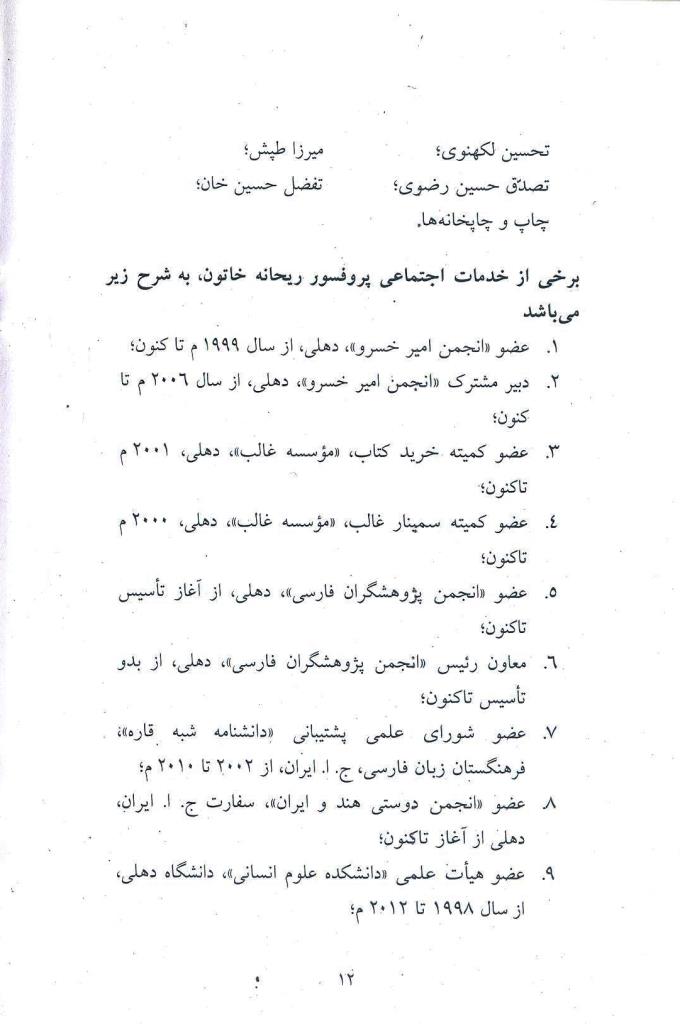 تحسین لکهنوی؛ میرزا طپش؛
تصدّق حسین رضوی؛ تفضل حسین خان؛
چاپ و چاپخانه‌ها.
برخی از خدمات اجتماعی پروفسور ریحانه خاتون، به شرح زیر
می‌باشد
۱. عضو «انجمن امیر خسرو»، دهلی، از سال ۱۹۹۹ م تا کنون؛
۲. دبیر مشترک «انجمن امیر خسرو»، دهلی، از سال ۲۰۰۶ م تا
کنون؛
۳. عضو کمیته خرید کتاب، «مؤسسه غالب»، دهلی، ۲۰۰۱ م
تاکنون؛
۴. عضو کمیته سمینار غالب، «مؤسسه غالب»، دهلی، ۲۰۰۰ م
تاکنون؛
۵. عضو «انجمن پژوهشگران فارسی»، دهلی، از آغاز تأسیس
تاکنون؛
۶. معاون رئیس «انجمن پژوهشگران فارسی»، دهلی، از بدو
تأسیس تاکنون؛
۷. عضو شورای علمی پشتیبانی «دانشنامه شبه قاره»،
فرهنگستان زبان فارسی، ج. ا. ایران، از ۲۰۰۲ تا ۲۰۱۰ م؛
۸. عضو «انجمن دوستی هند و ایران»، سفارت ج. ا. ایران،
دهلی از آغاز تاکنون؛
۹. عضو هیأت علمی «دانشکده علوم انسانی»، دانشگاه دهلی،
از سال ۱۹۹۸ تا ۲۰۱۲ م؛
۱۲